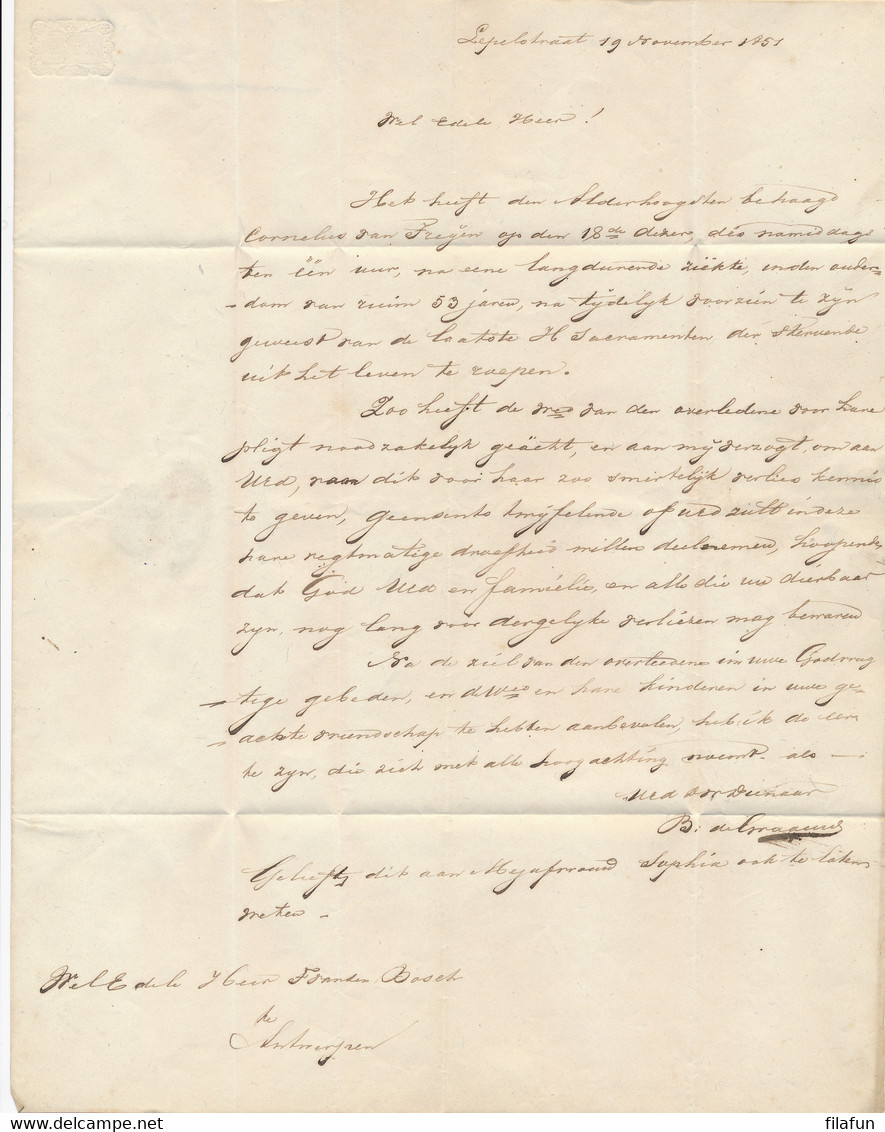 Lepelstraat 19 November 1851
Wel Edele Heer!
Het heeft den Alderhoogsten behaagd
Cornelius van Treÿen op den 18de dezer, des namiddags
ten één uur, na eene langdurende ziekte, in den ouder-
-dom van ruim 53 jaren, na tÿdelÿk voorzien te zÿn
geweest van de laatste H Sacramenten der stervende
uit het leven te roepen.
Zoo heeft de we van den overledene voor hare
pligt noodzakelÿk geächt, en aan mÿ verzogt, om aan
UEd, van dit voor haar zoo smertelÿk verlies kennis
te geven, geensints twÿfelende of UEd zult in deze
hare regtmatige droefheid willen deelnemen, hoopende
dat God UEd en familie, en alle die uw dierbaar
zÿn, nog lang voor dergelÿke verliezen mag bewaren
Na de ziel van den overleedene in uwe Godvrug
-tige gebeden, en dWe en hare kinderen in uwe ge-
-achte vriendschap te hebben aanbevolen, heb ik de eer
te zÿn, die zich met alle hoogachting noemt als —
UEd Dienaar
B: de
Gelieft dit aan Mejufvrouw Sophia ook te laten
weten -
Wel Edele Heer F van den Bosch
te
Antwerpen
filafun